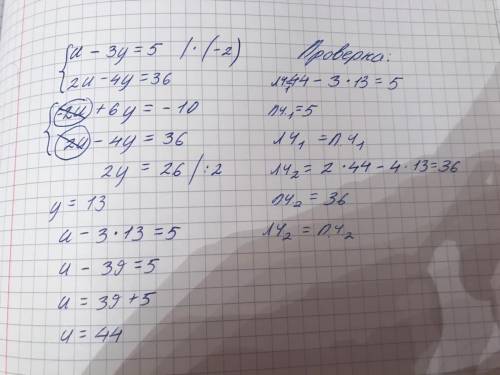 u - 3y = 5 | · (-2)
2u - 4y = 36
-2u + 6y = -10
2u - 4y = 36
2y = 26 | : 2
y = 13
u - 3 · 13 = 5
u - 39 = 5
u = 39 + 5
u = 44
Проверка:
ЛЧ₁ 44 - 3 · 13 = 5
ПЧ₁ = 5
ЛЧ₁ = ПЧ₁
ЛЧ₂ = 2 · 44 - 4 · 13 = 36
ПЧ₂ = 36
ЛЧ₂ = ПЧ₂